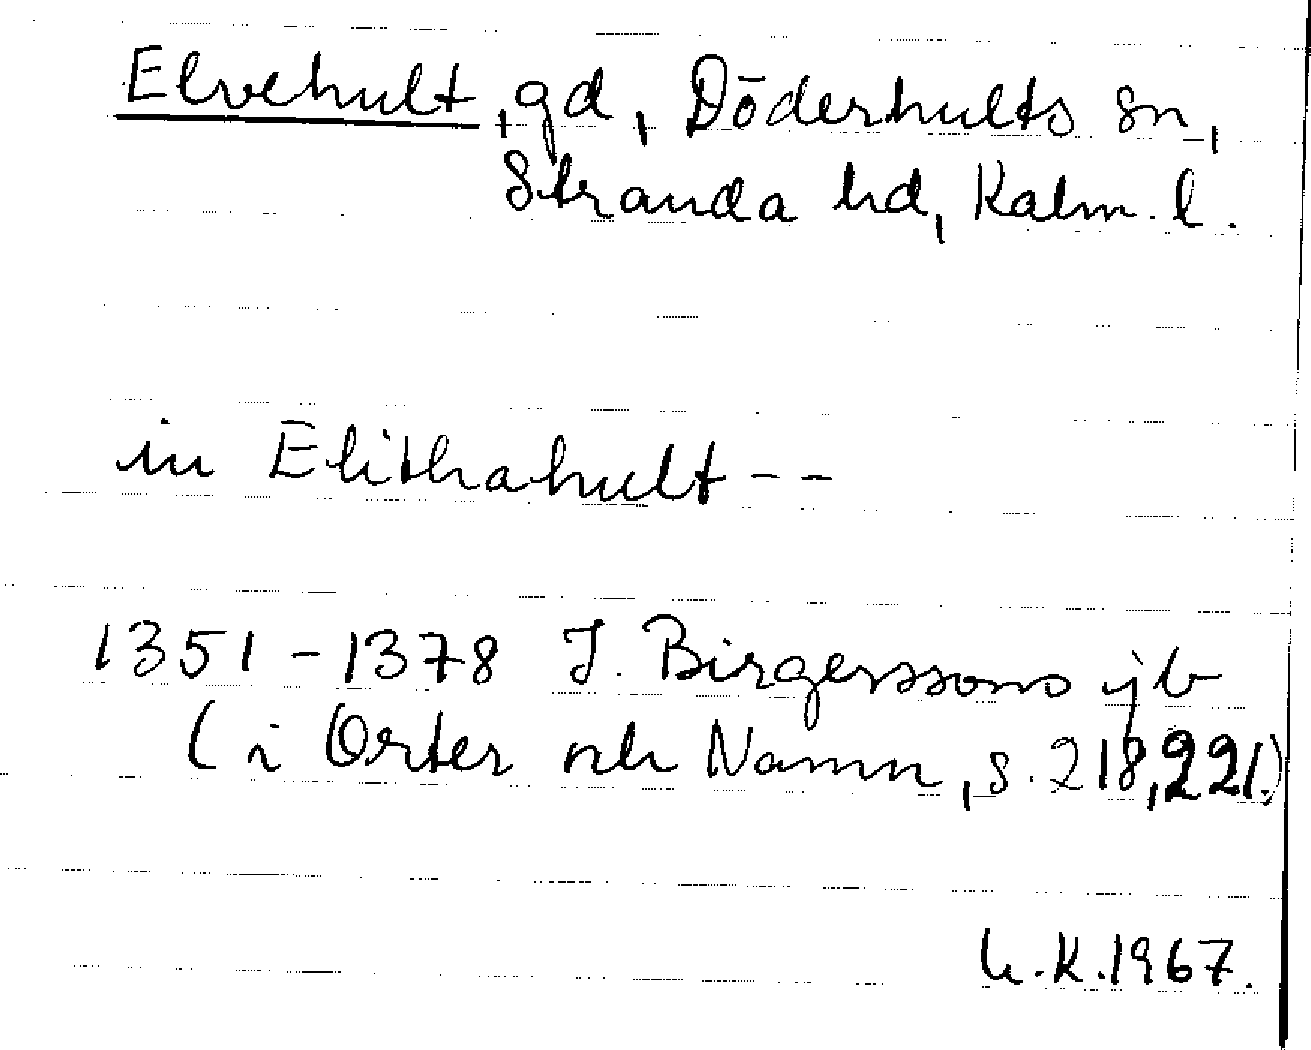 Elvehult, gd, Döderhults sn,
Stranda hd, Kalm. l.
in Elithahult - -
1351-1378 J. Birgerssons jb
(i Orter och Namn, s. 218, 221.)
U.K. 1967.